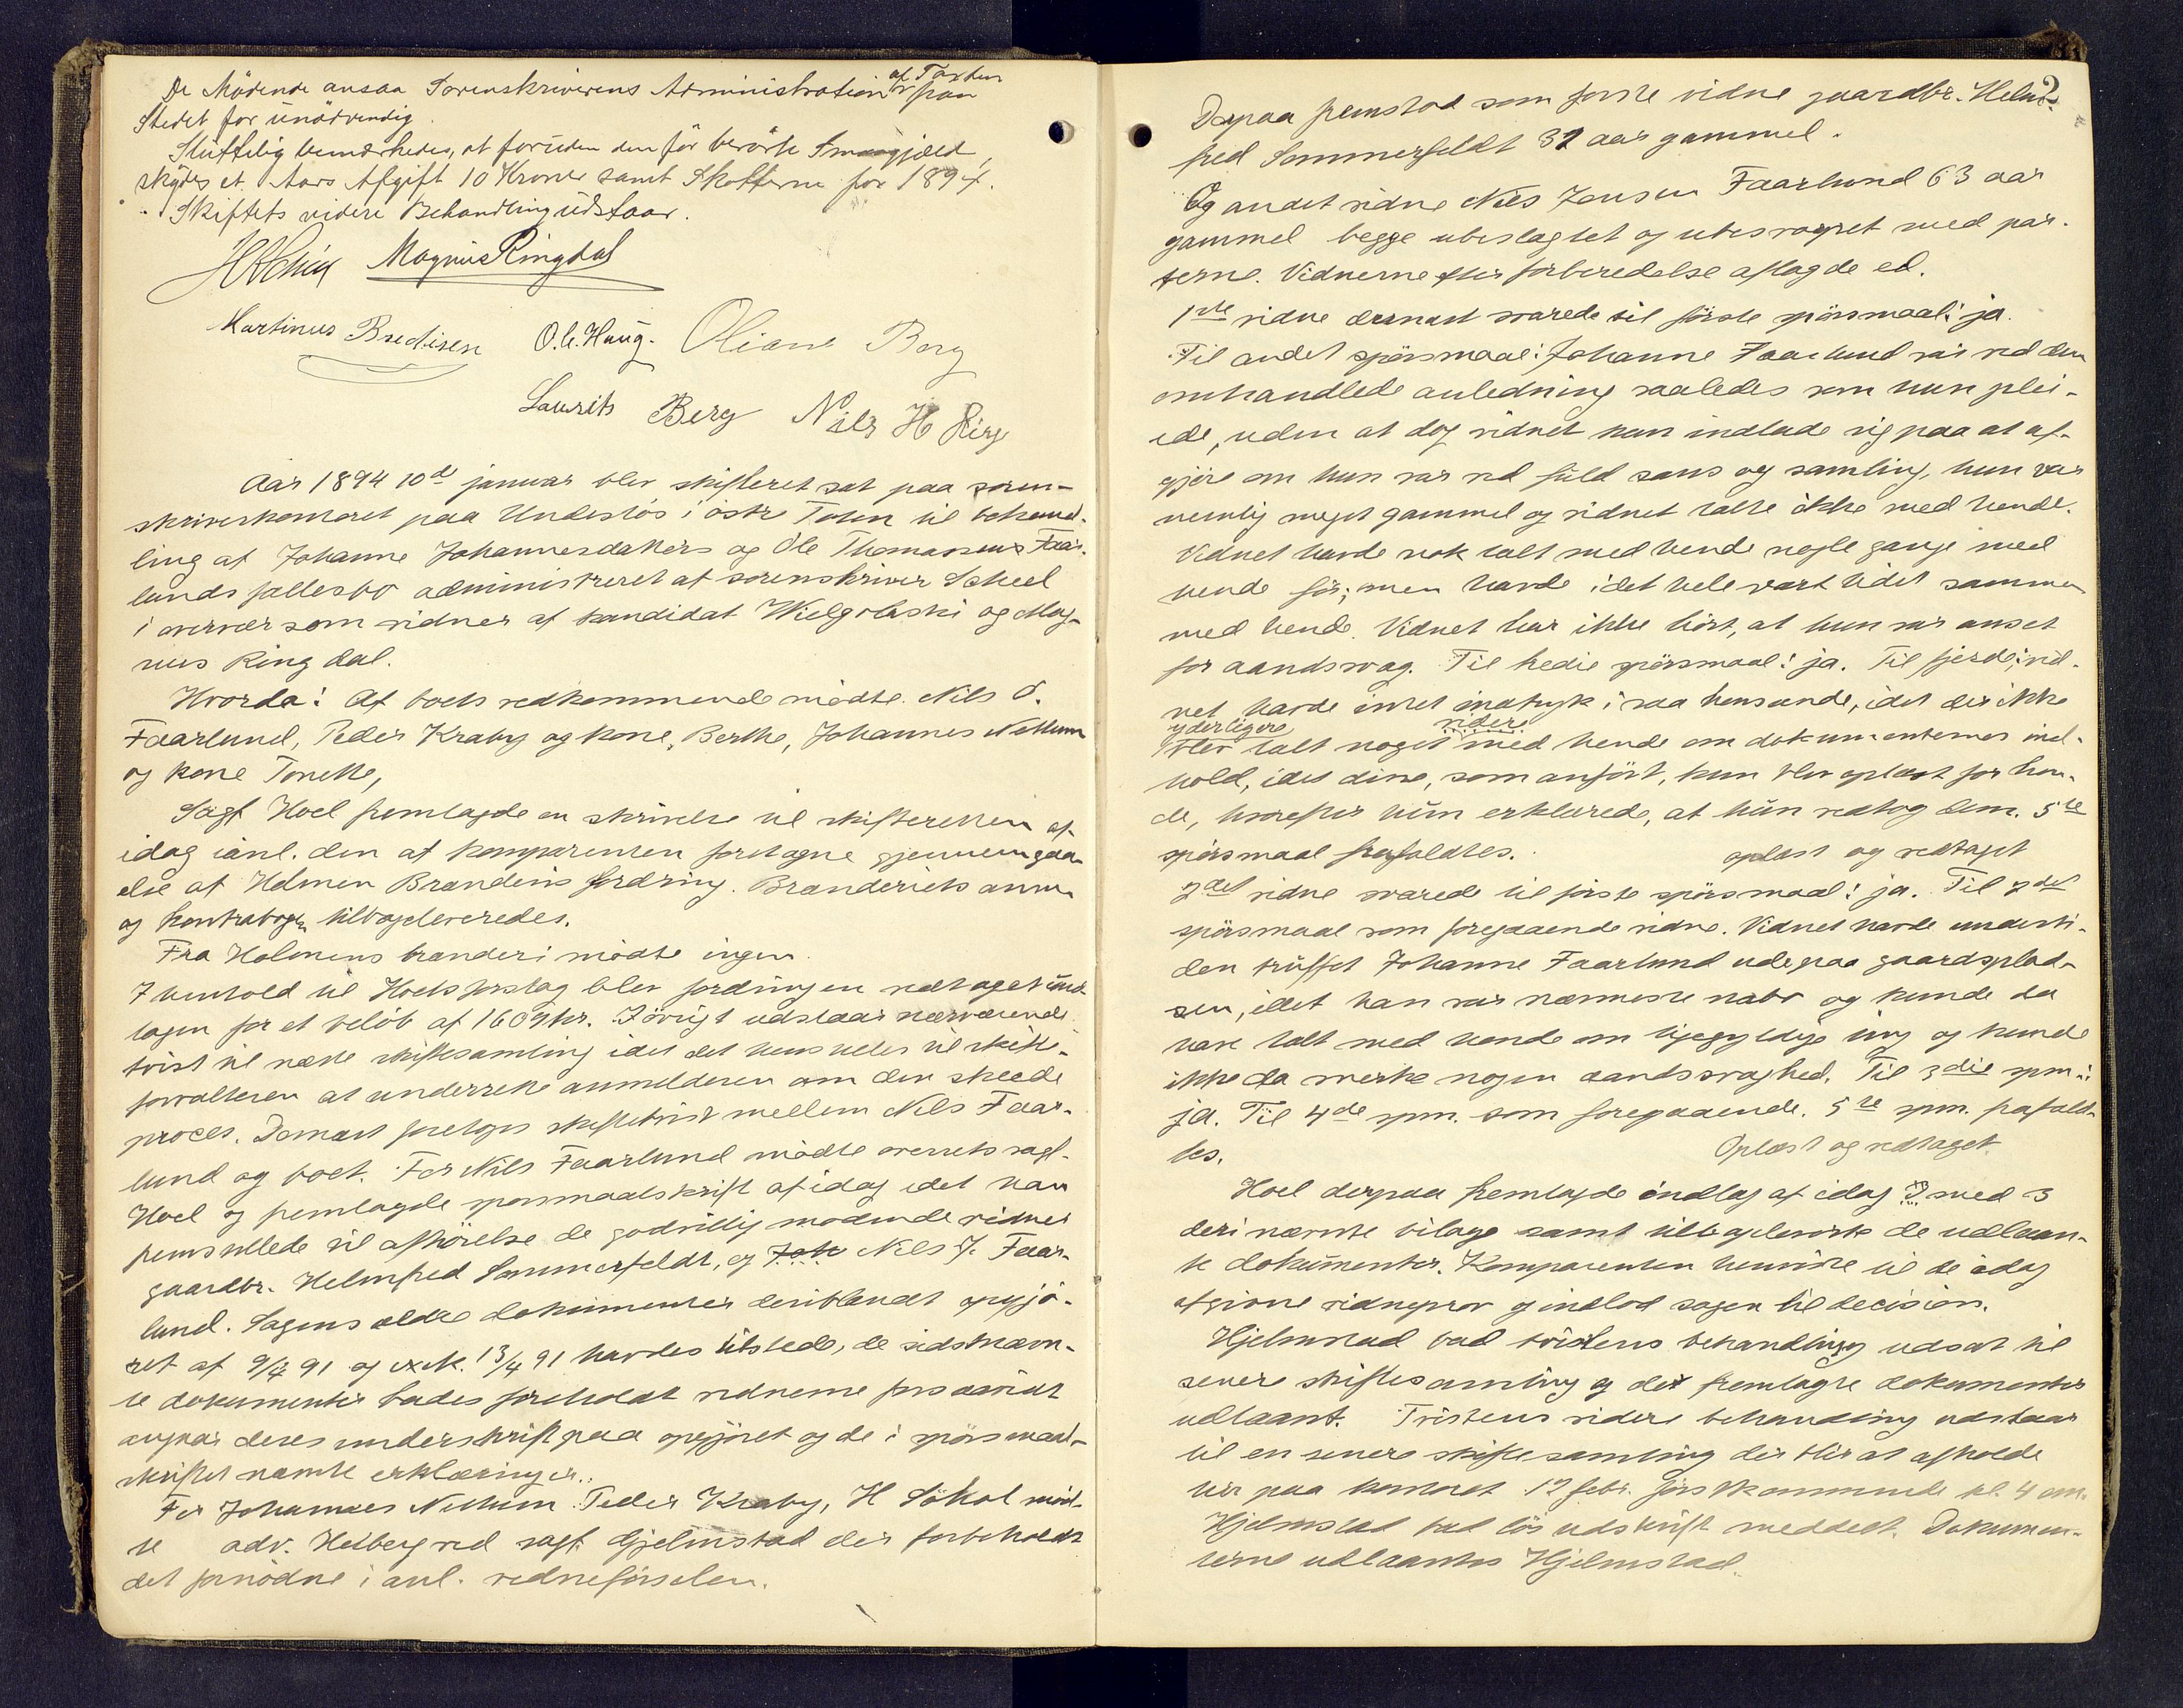 De Mødende ansaa Sorenskriverens Administration af Taxten paa
Stedet for unødvendig.
Sluttelig bemærkedes, at foruden den før berørte Smaagjæld,
skydes et Aars Afgift 10 Kroner samt Skatterne for 1894.
Skiftets videre Behandling udstaar.
Magnus Ringdal
Martinus Bredisen O. C. Haug. Oliane Berg
Laurits Berg Nils H
Aar 1894 10d januar blev skifteret sat paa soren-
skriverkontoret paa Undeslös i östre Toten til behand-
ling af Johanne Johannesdatters og Ole Thomassens Faar-
lunds fællesbo administreret af sorenskriver Scheel
i overvær som vidner af kandidat Wielgolaski og Mag-
nus Ringdal.
Hvorda: Af boets vedkommende mødte Nils O.
Faarlund, Peder Kraby og kone, Berthe, Johannes Nettum
og kone Tonette,
Sagf Hoel fremlagde en skrivelse til skifteretten af
idag ianl. den af komparenten foretagne gjennemgaa-
else af Holmen Brænderis fordring. Brænderiets anm.
og kontrabogen tilbageleveredes.
Fra Holmens brænderi mødte ingen.
I henhold til Hoels forslag blev fordringen vedtaget und-
tagen for et beløb af 160 kr. Iøvrigt udstaar nærværende
tvist til næste skiftesamling idet det henstilles til skifte-
forvalteren at underrette anmelderen om den skeede
proces. Dernæst foretoges skiftetvist mellem Nils Faar-
lund og boet. For Nils Faarlund mødte overretssagf.
Hoel og fremlagde spørsmaalskrift af idag idet han
fremstillede til afhørelse de godvillig mødende vidner
gaardbr. Helmfred Sommerfeldt, og Joh Nils J. Faar-
lund. Sagens ældre dokumenter deriblandt opgjö-
ret af 9/4 91 og 13/4 91 havdes tilstede, de sidstnævn-
te dokumenter bades foreholdt vidnerne forsaavidt
angaar deres underskrift paa opgjöret og de i spörsmaal-
skriftet nævnte erklæringer.
For Johannes Nettum Peder Kraby, H Sökol mød-
te adv. Heiberg ved sagf. Hjelmstad der forbeholdt
det fornödne i anl. vidneförselen.
2
Derpaa fremstod som første vidne gaardbr. Helm-
fred Sommerfeldt 31 aar gammel.
Og andet vidne Nils Jensen Faarlund 63 aar
gammel begge ubeslagtet og ubesvogret med par-
terne. Vidnerne efter forberedelse aflagde ed.
1ste vidne dernæst svarede til förste spörsmaal: ja.
Til andet spörsmaal: Johanne Faarlund var ved den
omhandlede anledning saaledes som hun plei-
ede, uden at dog vidnet kan indlade sig paa at af-
gjøre om hun var ved fuld sans og samling, hun var
nemlig meget gammel og vidnet talte ikke med hende.
Vidnet havde nok talt med hende nogle gange med
hende før; men havde i det hele vært lidet sammen
med hende. Vidnet har ikke hört, at hun var anset
for aandssvag. Til tredie spörsmaal: ja. Til fjerde: vid-
net havde intet indtryk i saa henseende, idet der ikke
yderligere videre
blev talt noget med hende om dokumenternes ind-
hold, idet disse, som anfört, kun blev oplæst for hen-
de, hvorefter hun erklærede, at hun vedtog dem. 5te
spörsmaal frafaldtes. oplæst og vedtaget
2det vidne svarede til förste spörsmaal: ja. Til 2det
spörsmaal som foregaaende vidne. Vidnet havde understi-
den truffet Johanne Faarlund ude paa gaardsplad-
sen, idet han var nærmeste nabo og kunde da
have talt med hende om ligegyldige ting og kunde
ikke da merke nogen aandssvaghed. Til 3die spm:
ja. Til 4de spm. som foregaaende. 5te spm. frafald-
tes. Oplæst og vedtaget.
Hoel derpaa fremlagde indlæg af idag med 3
deri nævnte bilage samt tilbageleverte de udlaan-
te dokumenter. Komparenten henviste til de idag
afgivne vidneprov og indlod sagen til decision.
Hjelmstad bad tvistens behandling udsat til
senere skiftesamling og det fremlagte dokumenter
udlaant. Tvistens videre behandling udstaar
til en senere skiftesamling der blir at afholde
her paa kontoret 17 febr. förstkommende kl. 4 em.
Hjelmstad bad lös udskrift meddelt. Dokumen-
terne udlaantes Hjelmstad.